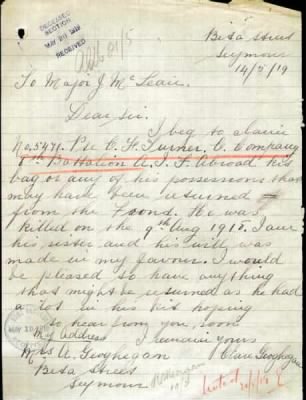 DECEASED
SECTION
MAY 20 1919
RECEIVED
Beta Street
Seymour
14/5/19
To Major J. McLean.
Dear Sir.
I beg to claim
No. 5471. Pte C. H. Turner. C. Company
Battalion A. I. F. Abroad his
bag or any of his possessions that
may have been returned
from the Front. He was
killed on the 9th Aug 1918. I am
his sister and his will was
made in my favour. I would
be pleased to have anything
that might be returned as he had
a lot in his kit hoping
to hear from you soon
My Address I remain yours
Mrs A. Geoghegan Clare Geoghegan
Beta Street
Seymour